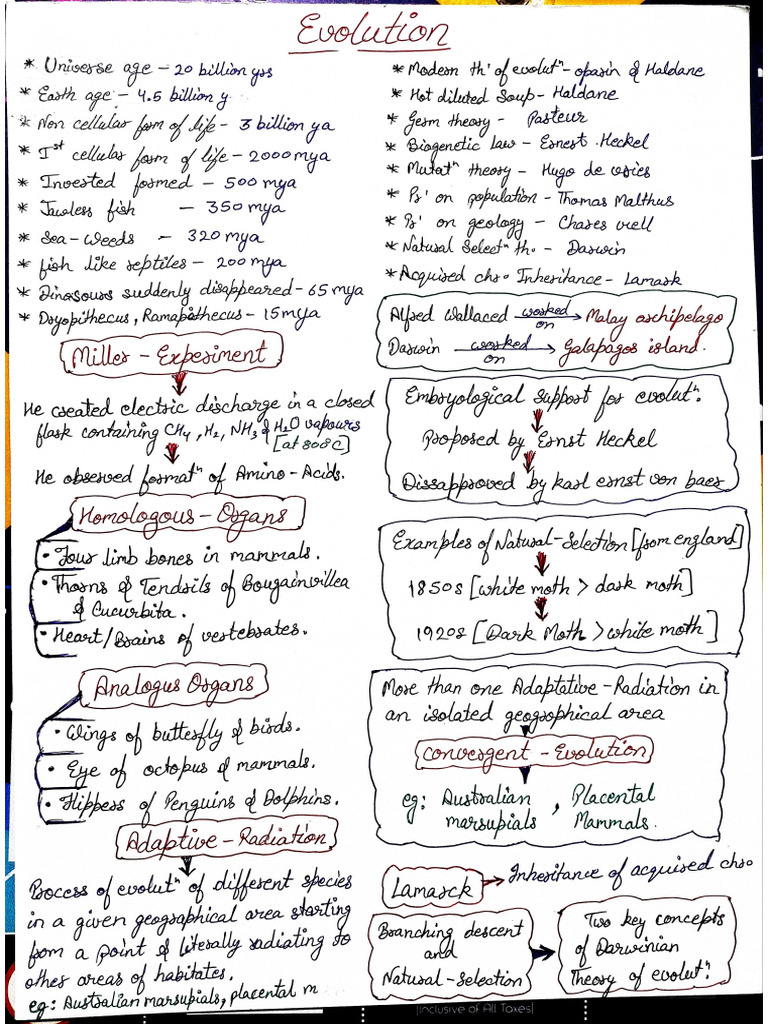 Evolution
* Universe age - 20 billion yrs
* Earth age - 4.5 billion y
* Non cellular form of life - 3 billion ya
* Ist cellular form of life - 2000 mya
* Invested formed - 500 mya
* Jawless fish - 350 mya
* Sea-weeds - 320 mya
* fish like reptiles - 200 mya
* Dinosours suddenly disappeared - 65 mya
* Dryopithecus, Ramapithecus - 15 mya
Miller - Experiment
He created electric discharge in a closed
flask containing CH4, H2, NH3 & H2O vapours
[at 808°C]
He observed formatn of Amino-Acids.
Homologous - Organs
• Four limb bones in mammals.
• Thorns & Tendrils of Bougainvillea
& Cucurbita.
• Heart/Brains of vertebrates.
Analogus Organs
• Wings of butterfly & birds.
• Eye of octopus & mammals.
• Flippers of Penguins & Dolphins.
Adaptive - Radiation
Process of evolutn of different species
in a given geographical area starting
from a point & literally radiating to
other areas of habitates.
eg: Australian marsupials, placental m
* Modern th' of evolutn - oparin & Haldane
* Hot diluted Soup - Haldane
* Germ theory - Pasteur
* Biogenetic law - Ernest Heckel
* Mutatn theory - Hugo de vries
* Pr' on population - Thomas Malthus
* Pr' on geology - Chares
* Natural Selectn th. - Darwin
* Acquired chr. Inheritance - Lamark
Alfred Wallaced worked on → Malay archipelago
Darwin worked on → Galapagos island.
Embryological Support for evolutn.
Proposed by Ernst Heckel
Dissapproved by karl ernst von baer
Examples of Natural-Selection [from england]
1850s [white moth > dark moth]
1920s [Dark Moth > white moth]
More than one Adaptative-Radiation in
an isolated geographical area
convergent - Evolution
eg: Australian marsupials, Placental Mammals.
Lamarck → Inheritance of acquired chr.
Branching descent
and
Natural-Selection
Two key concepts
of Darwinian
Theory of evolutn.
Inclusive of All Taxes